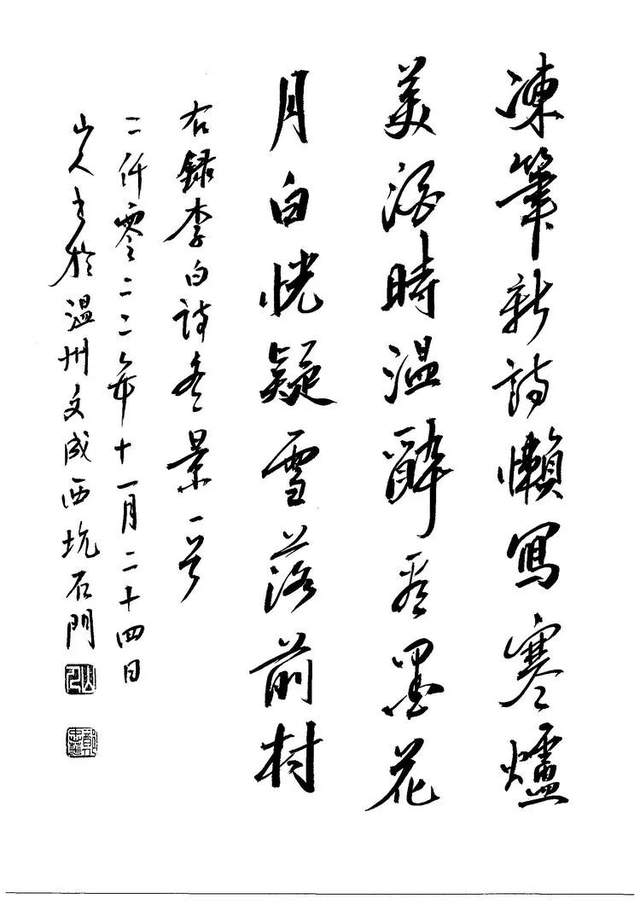 凍筆新詩懶寫寒爐
美酒時温醉看墨花
月白恍疑雪落前村
右録李白詩冬景一首
二仟零二二年十一月二十四日
山人書於温州文成西坑石門